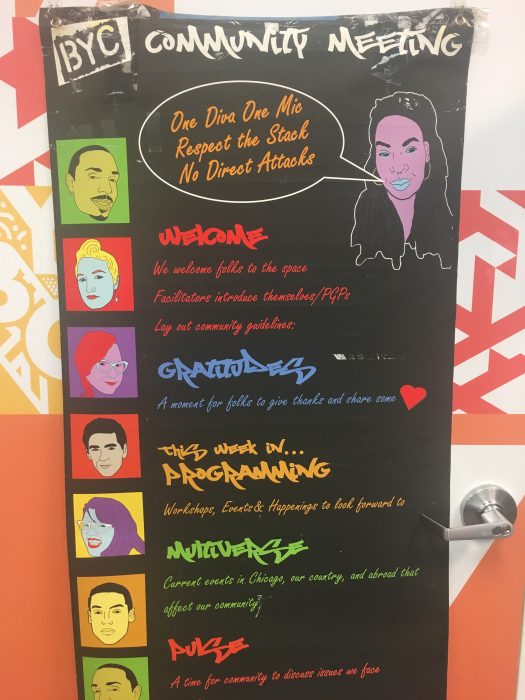 BYC COMMUNITY MEETING
One Diva One Mic
Respect the Stack
No Direct Attacks
WELCOME
We welcome folks to the space
Facilitators introduce themselves/PGPs
Lay out community guidelines:
GRATITUDES
A moment for folks to give thanks and share some
THIS WEEK IN...
PROGRAMMING
Workshops, Events& Happenings to look forward to
MULTIVERSE
Current events in Chicago, our country, and abroad that
affect our community;
PULSE
A time for community to discuss issues we face